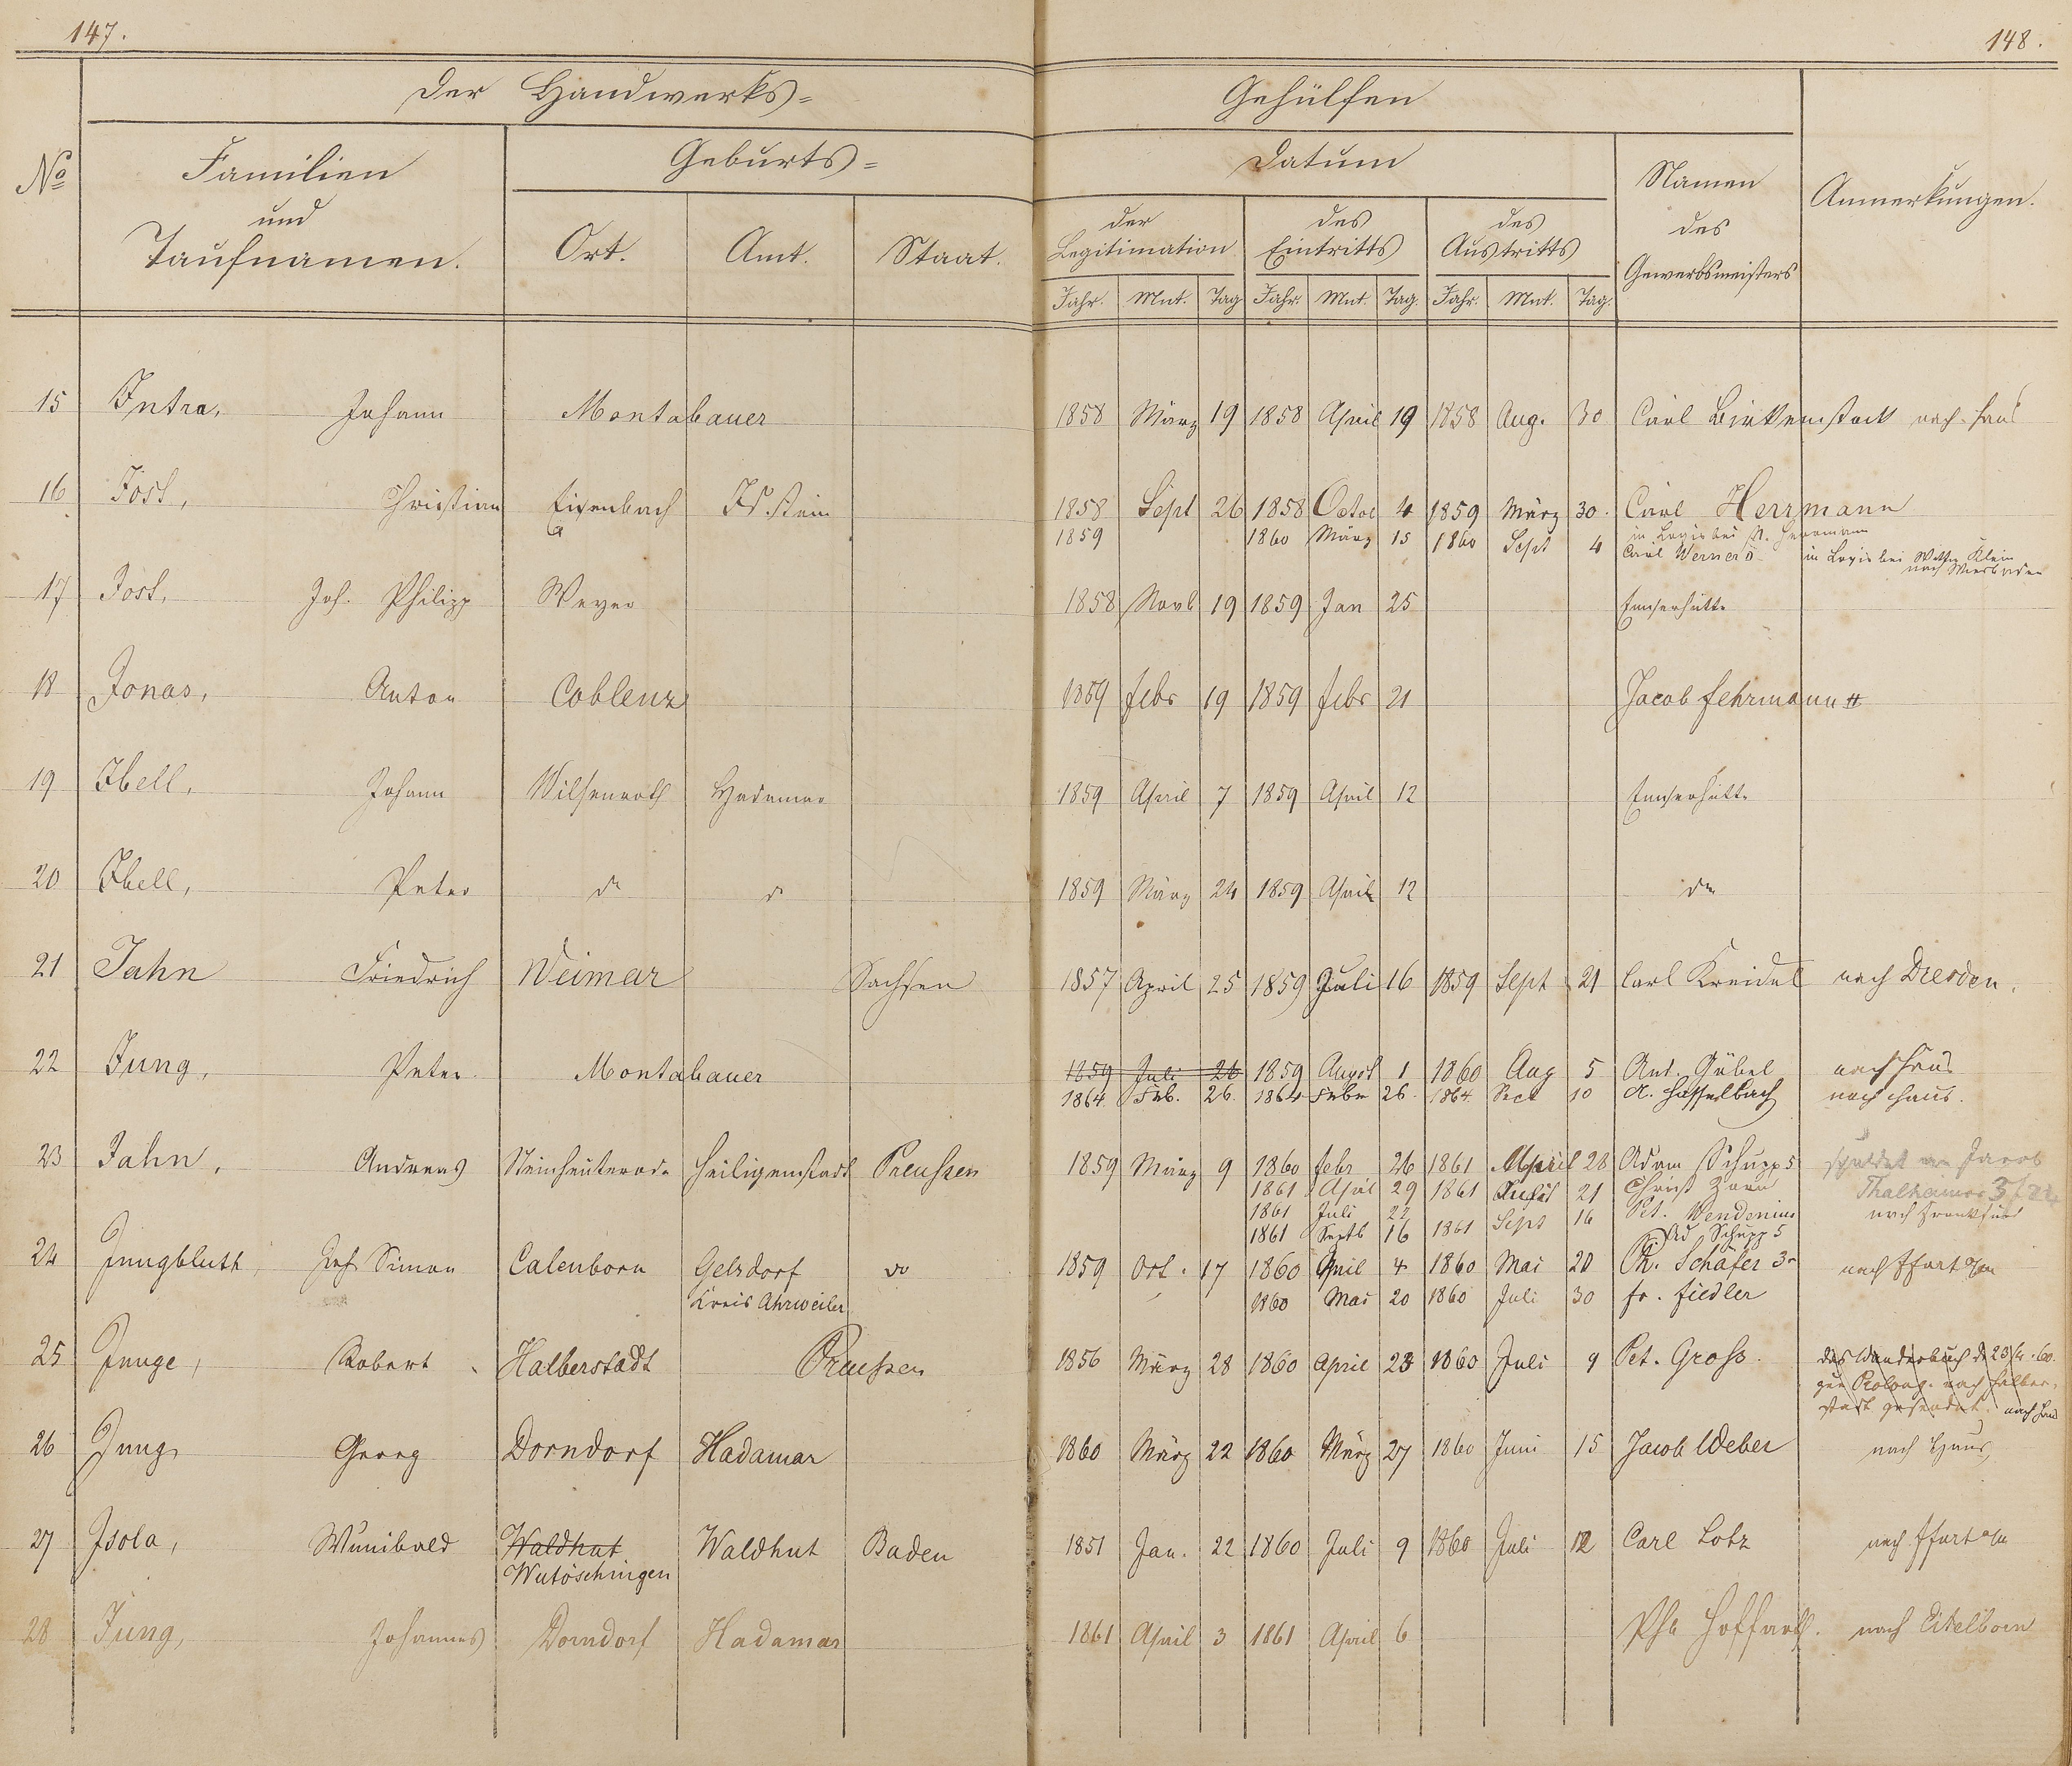 147.
148.
Der Handwerks=
Gehülfen
No
Familien
und
Taufnamen.
Geburts=
Ort.
Amt.
Staat.
Datum
der
Legitimation
des
Eintritts
des
Austritts
Jahr. Mnt. Tag Jahr. Mnt. Tag. Jahr. Mnt. Tag.
Namen
des
Gewerbsmeisters
Anmerkungen.
15 Intra, Johann Montabauer 1858 März 19 1858 April 19 1858 Aug. 30 Carl Birkenstock nach Haus
16 Jost, Christian Eisenbach Idstein 1858 Sept 26 1858 Octob 4 1859 März 30. Carl Herrmann
1859 1860 März 15 1860 Sept 4 in Logis bei A. Herrmann
Carl Werner in Logis bei Wittw Klein
nach Wiesbaden
17 Jost, Joh. Philipp Weyer 1858 Novb 19 1859 Jan 25 Emserhütte
18 Jonas, Anton Coblenz 1859 febr 19 1859 febr 21 Jacob Fehrmann II
19 Ibell, Johann Wilsenroth Hadamar 1859 April 7 1859 April 12 Emserhütte
20 Ibell, Peter do do 1859 März 24 1859 April 12 do
21 Jahn Friedrich Weimar Sachsen 1857 April 25 1859 Juli 16 1859 Sept 21 Carl Kreidel nach Dresden.
22 Jung, Peter Montabauer 1859 Juli 26 1859 August 1 1860 Aug 5 Ant. Gübel nach Haus
1864 Feb. 26. 1864 Febr 26. 1864. 10 A. Hasselbach nach Haus.
23 Jahn, Andreas Steinheuterode Heiligenstadt Preußen 1859 März 9 1860 febr 26 1861 April 28 Adam Schupp 5 schuldet an Jacob
1861 April 29 1861 21 Christ Zorn Thalheimer 3 f 24
1861 Juli 22 Pet. Wendenius nach Frankfurt
1861 Septb 16 1861 Sept 16 Ad Schupp 5
24 Jungbluth, Joh Simon Calenborn Gelsdorf do 1859 Oct. 17 1860 April 4 1860 Mai 20 Ph. Schäfer 3r nach Ffurt a/m
Kreis Ahrweiler 1860 Mai 20 1860 Juli 30 fr. Fiedler
25 Junge, Robert Halberstadt Preussen 1856 März 28 1860 April 23 1860 Juli 9 Pet. Gross. das Wanderbuch d 23/4. 60.
zur Prolong. nach Halber-
stadt gesendet. nach Haus
26 Jung Georg Dorndorf Hadamar 1860 März 22 1860 März 27 1860 Juni 15 Jacob Weber nach Haus,
27 Isola, Wunibald Waldhut Waldhut Baden 1851 Jan. 22 1860 Juli 9 1860 Juli 12 Carl Lotz nach Ffurt a/m
Wutöschingen
28 Jung, Johannes Dorndorf Hadamar 1861 April 3 1861 April 6 Phil Hoffarth. nach Eitelborn